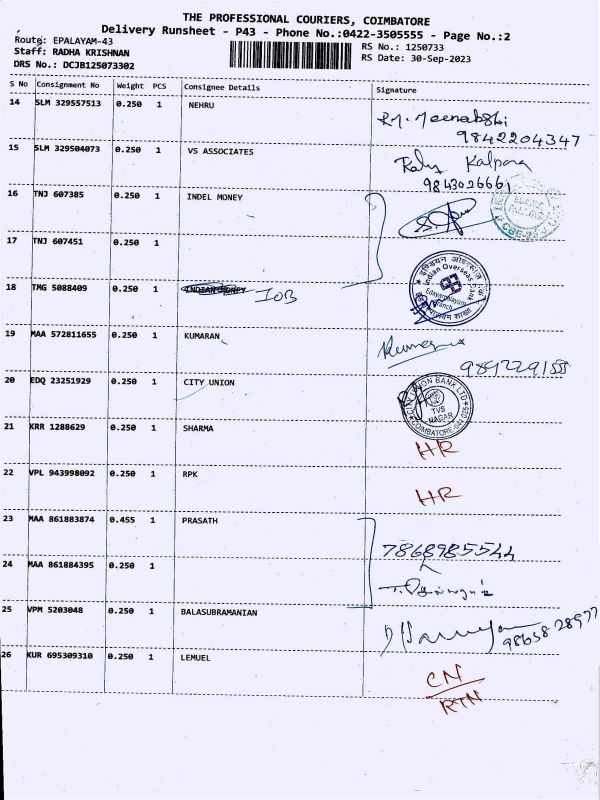 THE PROFESSIONAL COURIERS, COIMBATORE
Delivery Runsheet - P43 - Phone No.:0422-3505555 - Page No.:2
Route: EPALAYAM-43
Staff: RADHA KRISHNAN
DRS No.: DCJB125073302
RS No.: 1250733
RS Date: 30-Sep-2023
S No Consignment No Weight PCS Consignee Details Signature
14 SLM 329557513 0.250 1 NEHRU
9842204347
15 SLM 329504073 0.250 1 VS ASSOCIATES
Kalpana
9843026661
16 TNJ 607385 0.250 1 INDEL MONEY
17 TNJ 607451 0.250 1
18 TMG 5088409 0.250 1 INDIAN MONEY IOB
Indian Overseas
Branch
19 MAA 572811655 0.250 1 KUMARAN
20 EDQ 23251929 0.250 1 CITY UNION
CITY UNION BANK LTD
TVS
NAGAR
COIMBATORE-641 025
21 KRR 1288629 0.250 1 SHARMA
HR
22 VPL 943998092 0.250 1 RPK
HR
23 MAA 861883874 0.455 1 PRASATH
7868985544
24 MAA 861884395 0.250 1
25 VPM 5203048 0.250 1 BALASUBRAMANIAN
26 KUR 695309310 0.250 1 LEMUEL
CN
RTN